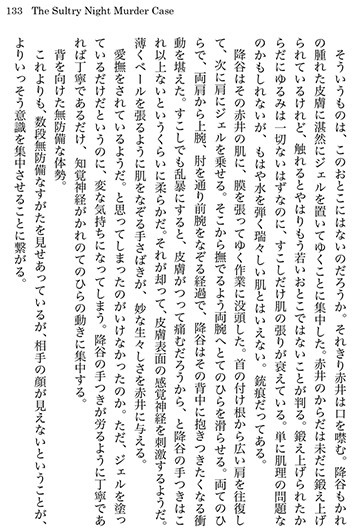 133　The Sultry Night Murder Case
　そういうものは、このおとこにはないのだろうか。それきり赤井は口を噤む。降谷もかれ
の腫れた皮膚に湛然にジェルを置いてゆくことに集中した。赤井のからだは未だに鍛え上げ
られているけれど、触れるとやはりもう若いおとこではないことが判る。鍛え上げられたか
らだにゆるみは一切ないはずなのに、すこしだけ肌の張りが衰えている。単に肌理の問題な
のかもしれないが、もはや水を弾く瑞々しい肌とはいえない。銃痕だってある。
　降谷はその赤井の肌に、膜を張ってゆく作業に没頭した。首の付け根から広い肩を往復し
て、次に肩にジェルを乗せる。そこから撫でるよう両腕へとてのひらを滑らせる。両てのひ
らで、両肩から上腕、肘を通り前腕をなぞる経過で、降谷はその背中に抱きつきたくなる衝
動を堪えた。すこしでも乱暴にすると、皮膚がつって痛むだろうから、と降谷の手つきはこ
れ以上ないというくらいに柔らかだ。それが却って、皮膚表面の感覚神経を刺激するようだ。
薄くベールを張るように肌をなぞる手さばきが、妙な生々しさを赤井に与える。
　愛撫をされているようだ。と思ってしまったのがいけなかったのか。ただ、ジェルを塗っ
ているだけだというのに、変な気持ちになってしまう。降谷の手つきが労るように丁寧であ
れば丁寧であるだけ、知覚神経がかれのてのひらの動きに集中する。
　背を向けた無防備な体勢。
　これよりも、数段無防備なすがたを見せあっているが、相手の顔が見えないということが、
よりいっそう意識を集中させることに繋がる。